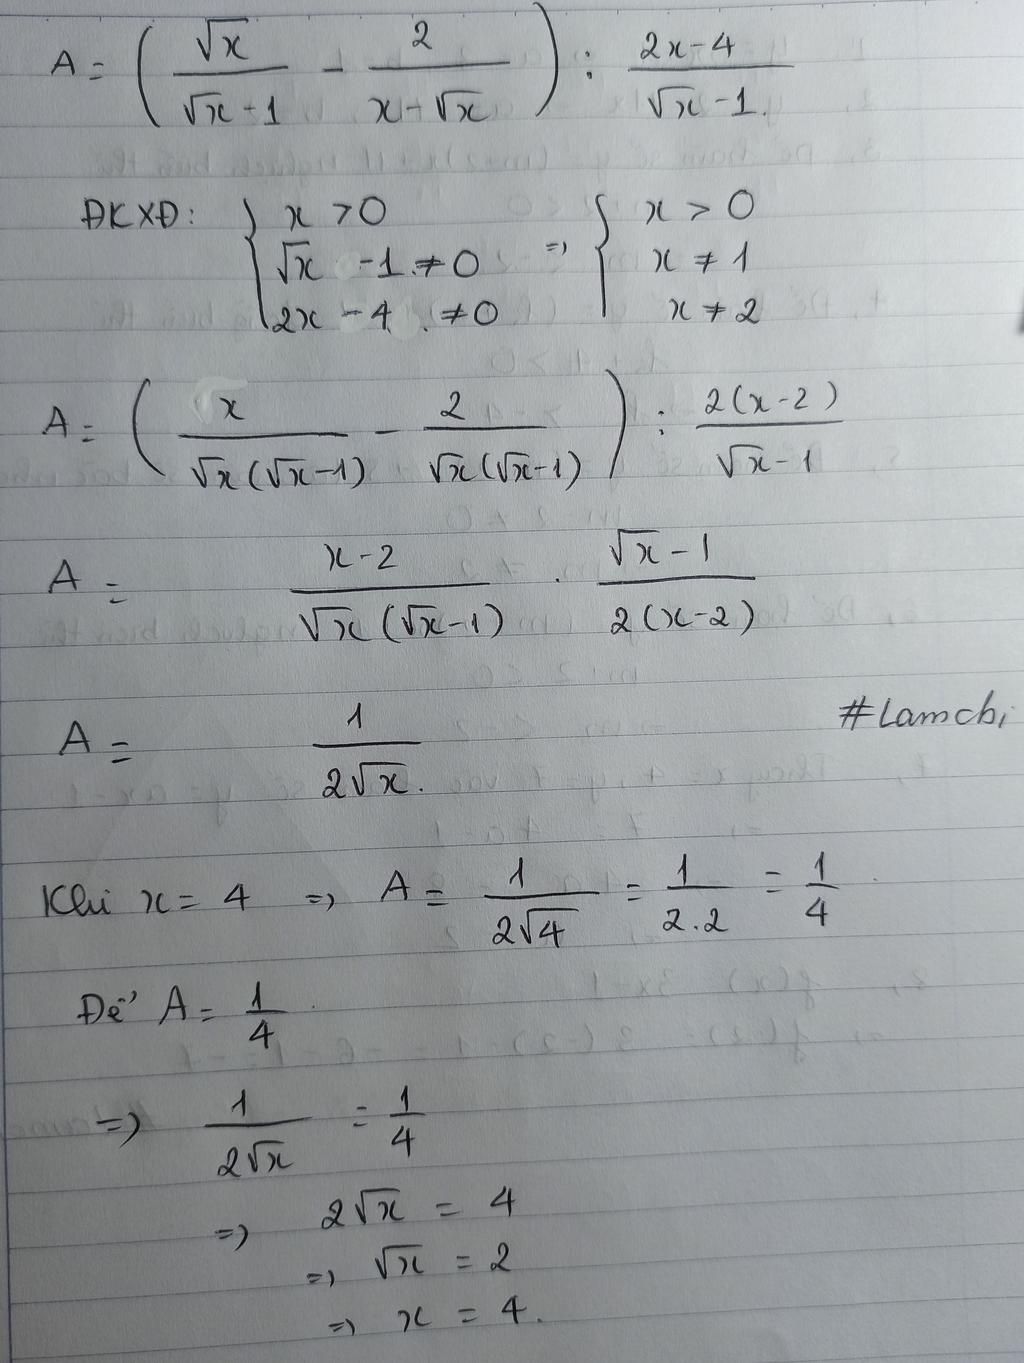 A = ( √x / (√x - 1) - 2 / (x - √x) ) : (2x - 4) / (√x - 1).
ĐKXĐ: { x > 0 => { x > 0
√x - 1 ≠ 0 x ≠ 1
2x - 4 ≠ 0 x ≠ 2
A = ( x / √x(√x-1) - 2 / √x(√x-1) ) : 2(x-2) / (√x - 1)
A = (x-2) / √x(√x-1) . (√x - 1) / 2(x-2)
A = 1 / 2√x. #Lamchi
Khi x = 4 => A = 1 / 2√4 = 1 / 2.2 = 1/4
Để A = 1/4
=> 1 / 2√x = 1/4
=> 2√x = 4
=> √x = 2
=> x = 4.